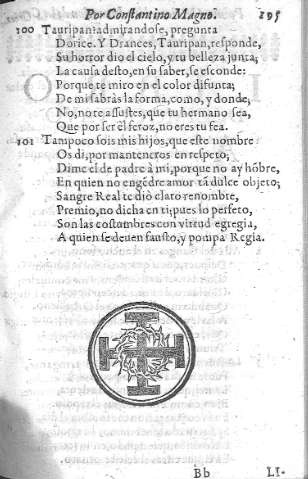 Por Constantino Magno. 195
100 Tauripanta admirandose, pregunta
Dorice. Y Drances, Tauripan, responde,
Su horror dio el cielo, y tu belleza junta;
La causa desto, en su saber, se esconde:
Porque te miro en el color difunta;
De mi sabràs la forma, como, y donde;
No, no te assustes, que tu hermano sea,
Que por ser èl feroz, no eres tu fea.
101 Tampoco sois mis hijos, que este nombre
Os di, por manteneros en respeto,
Dime el de padre à mi, porque no ay hõbre,
En quien no engẽdre amor tã dulce objeto;
Sangre Real te diò claro renombre,
Premio, no dicha en ti; pues lo perfeto,
Son las costumbres con virtud egregia,
A quien se deuen fausto, y pompa Regia.
Bb LI-